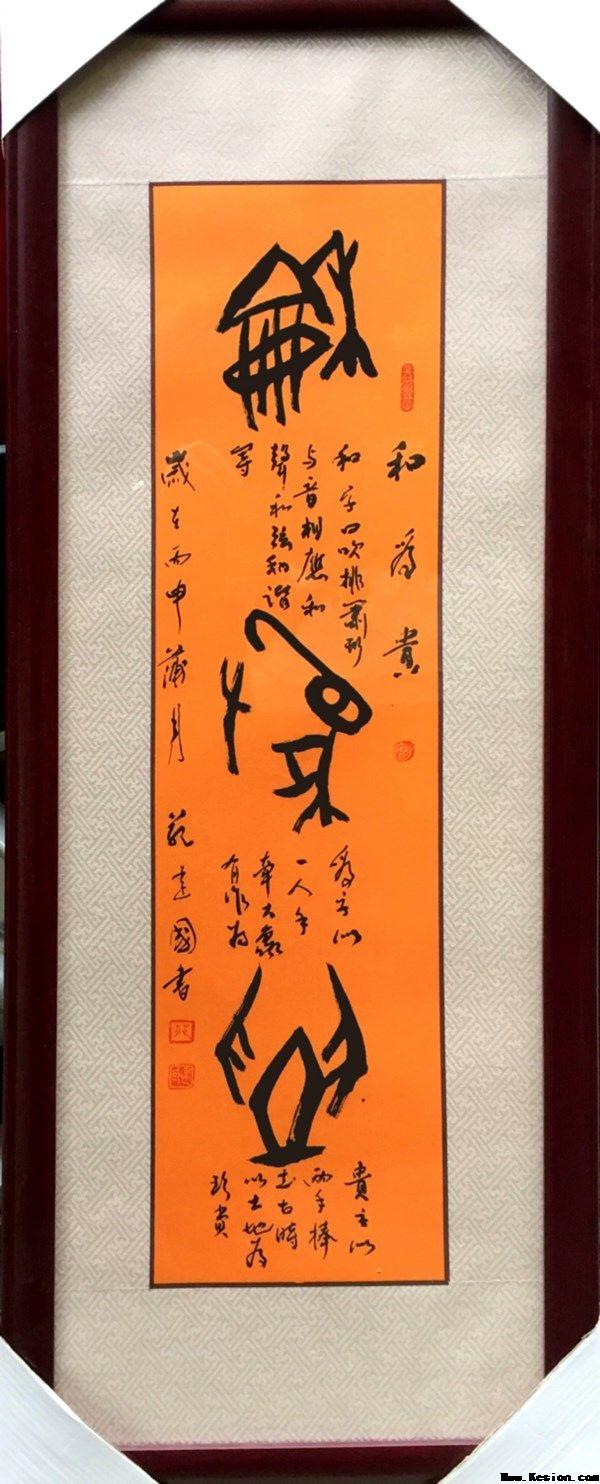 龢
為
貴
和為貴
和字曰吹排簫形
与音相應和
聲和弦和諧
等
為字似
一人手
牽大象
有作為
貴字似
兩手捧
土古時
以土地為
珍貴
歲在丙申蒲月 范建國書
Www.Kesion.com